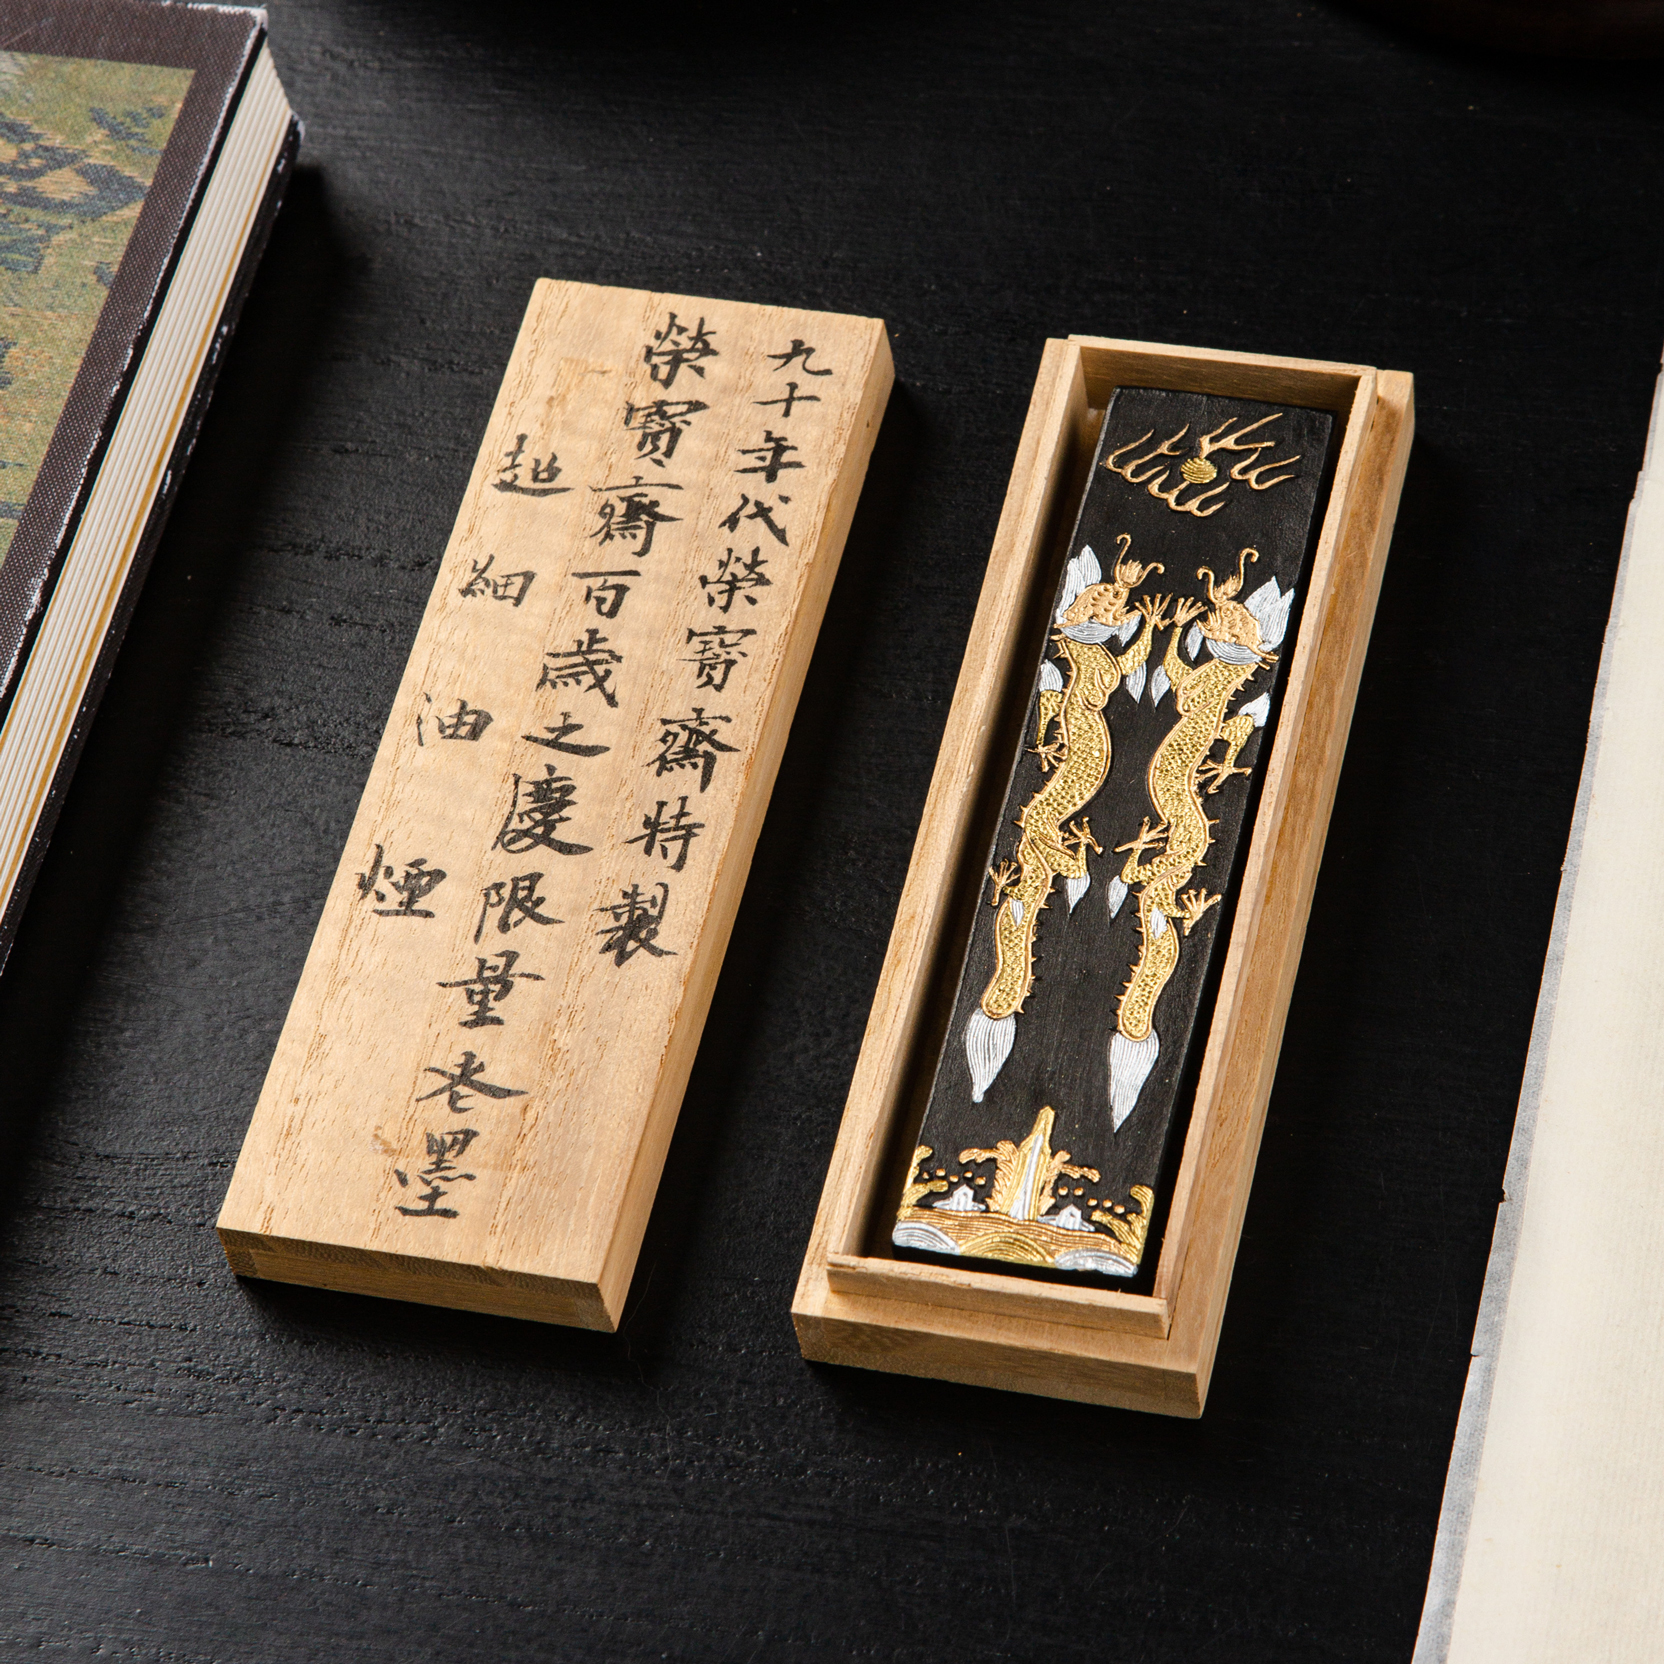 九十年代榮寳齋特製
榮寳齋百歲之慶限量老墨
超細油煙